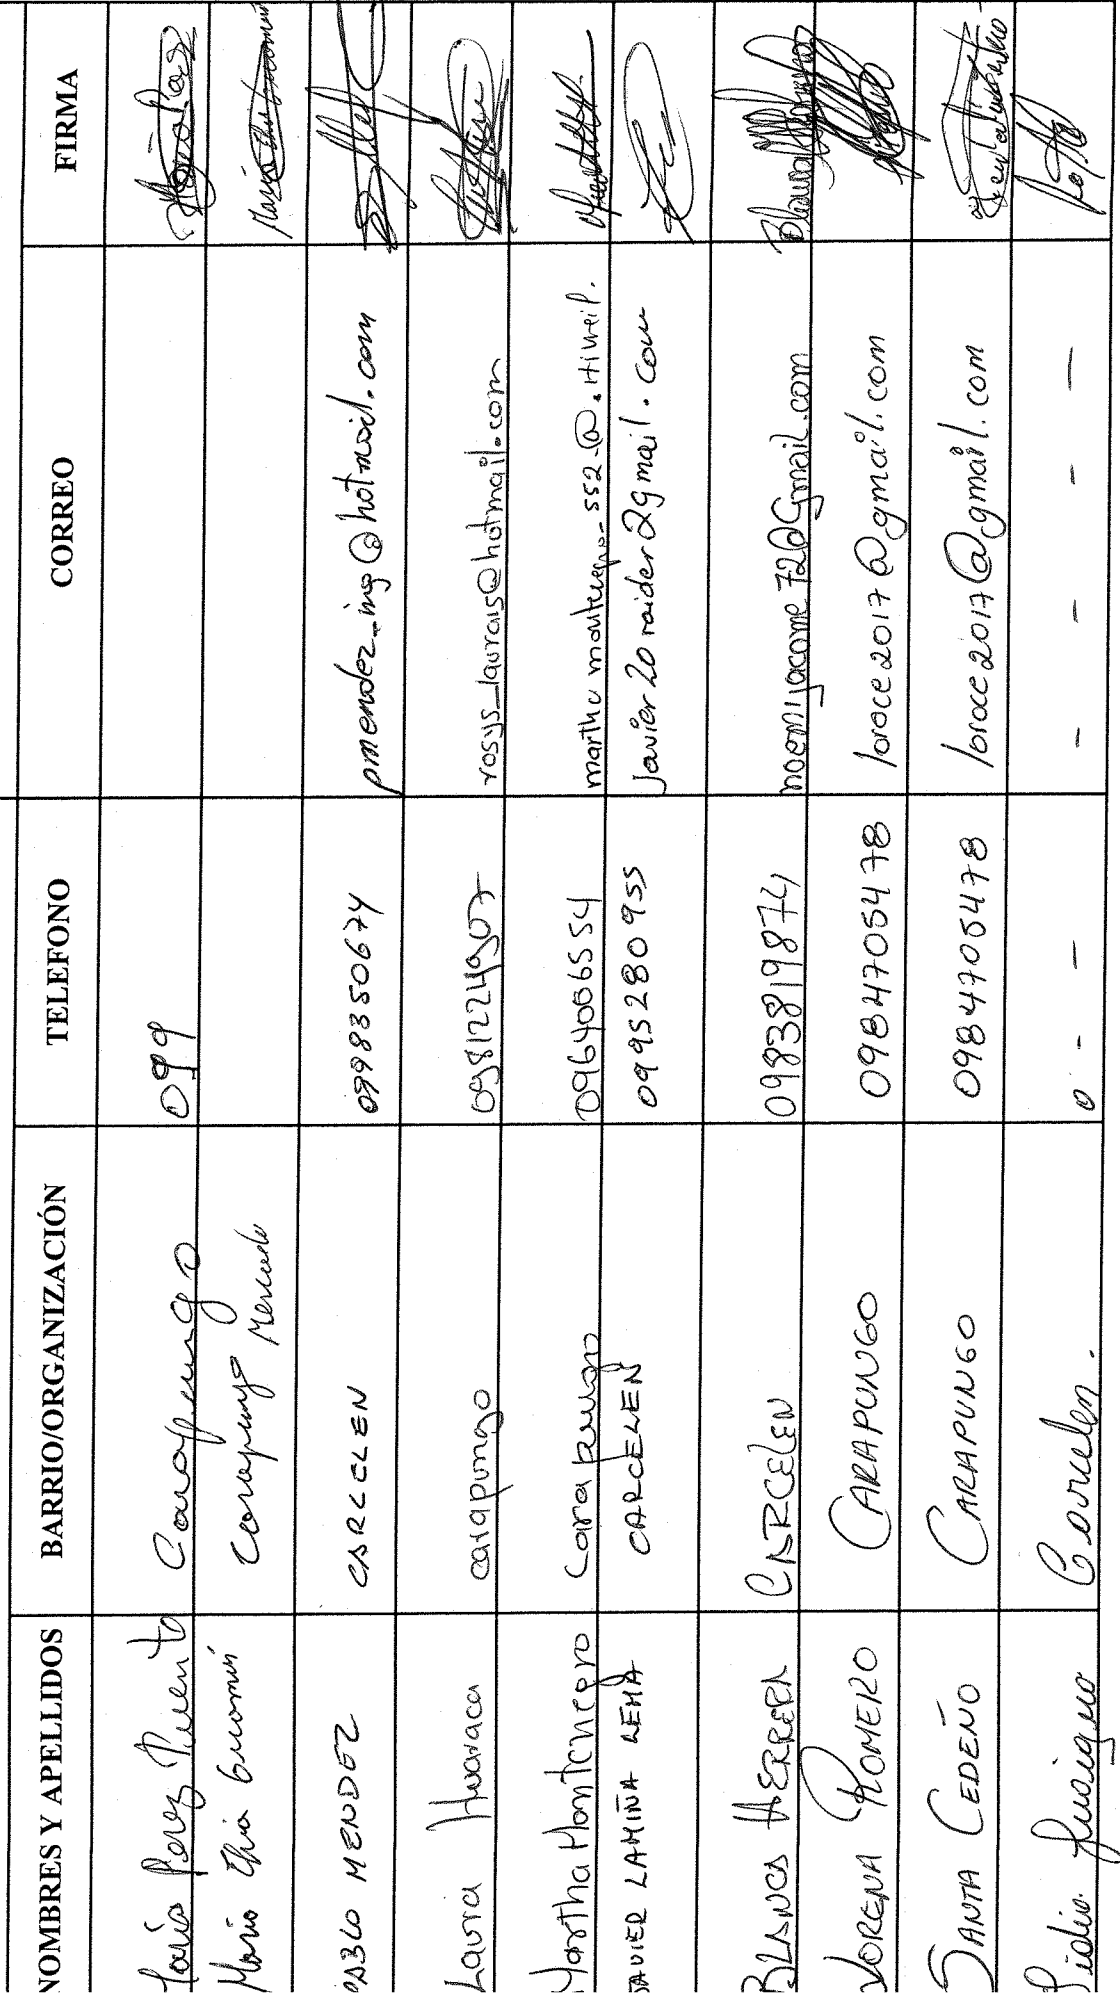 NOMBRES Y APELLIDOS BARRIO/ORGANIZACIÓN TELEFONO CORREO FIRMA
María Perez Pimento Carapungo 099
María Chia Guamán Carapungo Mercado
PABLO MENDEZ CARCELEN 0998350674 pmendez_ing@hotmail.com
Laura Huaraca carapungo 0981224907 rosys_laurais@hotmail.com
Martha Montenegro Carapungo 0964006554 martha montenegro-552-@.
JAVIER LAMIÑA LEMA CARCELEN 0995280955 Javier20raider2gmail.com
BLANCA HERRERA CARCELEN 0983819874 noemijacome72@Gmail.com
LORENA ROMERO CARAPUNGO 0984705478 loroce2017@gmail.com
SANTA CEDEÑO CARAPUNGO 0984705478 loroce2017@gmail.com
Carcelen. 0 - - - - - -